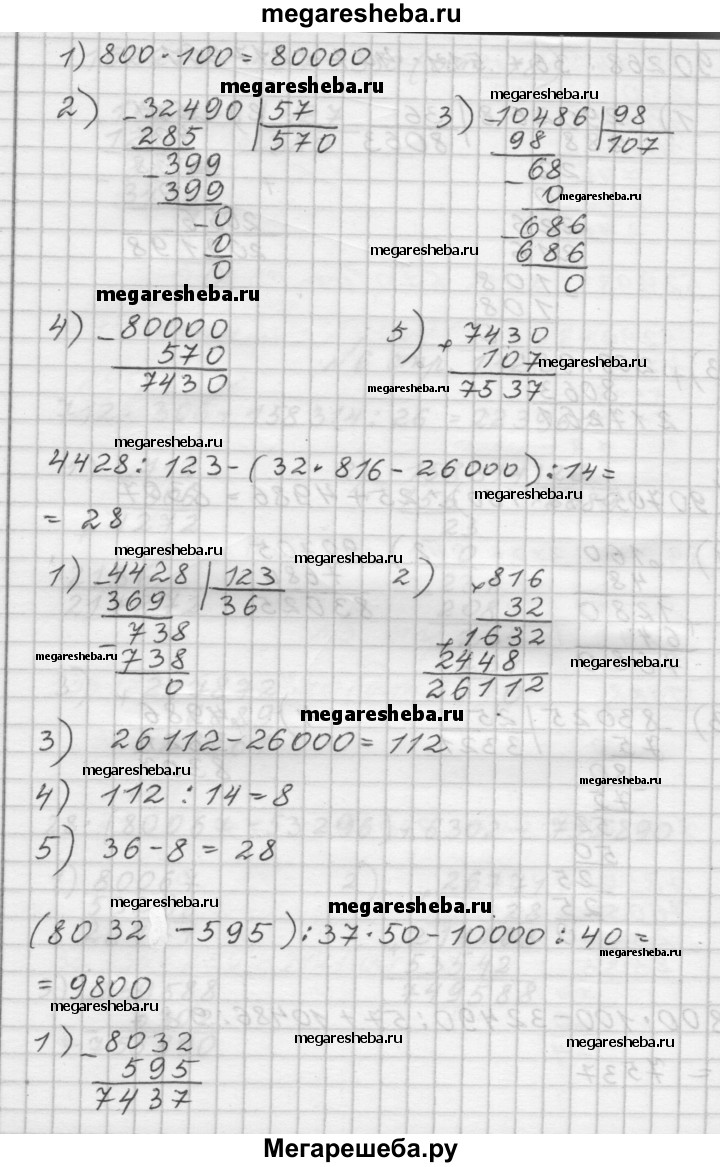 megaresheba.ru
1) 800 · 100 = 80000
megaresheba.ru
megaresheba.ru
2) - 32490 | 57
285 570
- 399
399
- 0
0
0
3) - 10486 | 98
98 107
- 68
0
megaresheba.ru
- 686
686
0
megaresheba.ru
megaresheba.ru
4) - 80000
570
7430
5) + 7430
107
7537
megaresheba.ru
megaresheba.ru
megaresheba.ru
4428 : 123 - (32 · 816 - 26000) : 14 =
megaresheba.ru
= 28
megaresheba.ru
megaresheba.ru
1) - 4428 | 123
369 36
- 738
738
0
megaresheba.ru
2) × 816
32
+ 1632
2448
26112
megaresheba.ru
megaresheba.ru
3) 26112 - 26000 = 112
megaresheba.ru
megaresheba.ru
4) 112 : 14 = 8
5) 36 - 8 = 28
megaresheba.ru
megaresheba.ru
(8032 - 595) : 37 · 50 - 10000 : 40 =
megaresheba.ru
= 9800
megaresheba.ru
megaresheba.ru
megaresheba.ru
1) - 8032
595
7437
Мегарешеба.ру